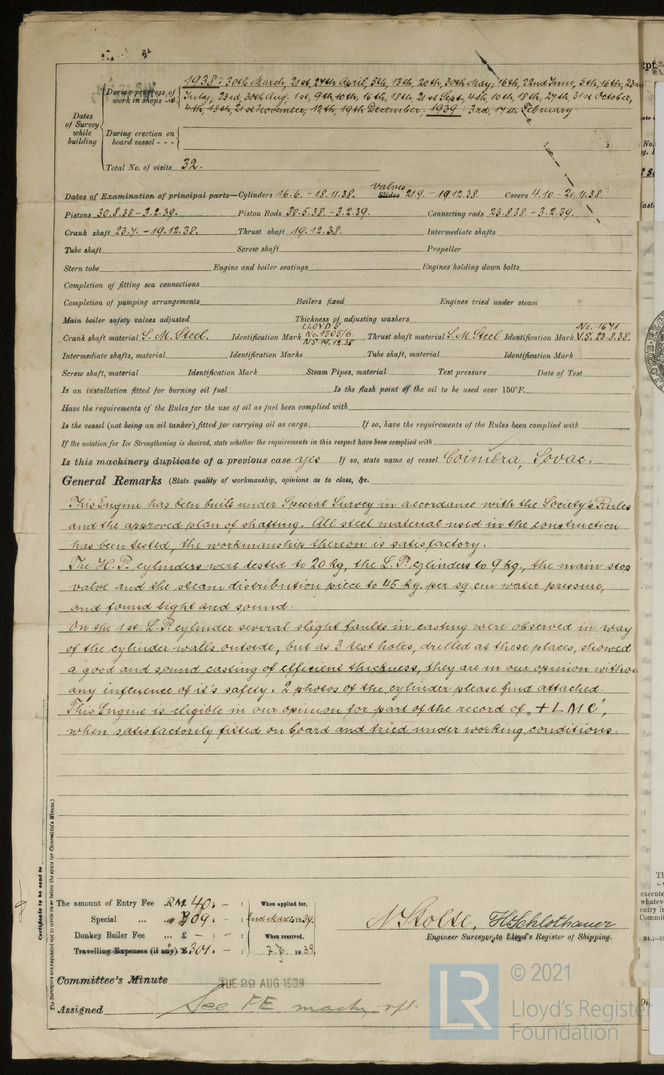 Dates of Survey while building
During progress of work in shops - - 1938: 30th March, 21st 27th April, 5th, 13th, 20th, 30th May, 16th, 22nd June, 5th, 16th, 23rd
July, 23rd, 30th Aug. 1st, 9th, 10th, 16th, 19th, 21st Sept, 4th, 10th, 18th, 27th, 31st October,
4th, 18th, 21st November, 12th, 19th December. 1939 3rd, 17th February.
During erection on board vessel - - -
Total No. of visits 32.
Dates of Examination of principal parts—Cylinders 16.6. - 18.11.38. Slides Valves 21.9. - 19.12.38 Covers 4.10 - 21.11.38
Pistons 30.8.38 - 3.2.39. Piston Rods 30.5.38 - 3.2.39. Connecting rods 23.8.38 - 3.2.39.
Crank shaft 23.7. - 19.12.38. Thrust shaft 19.12.38. Intermediate shafts
Tube shaft Screw shaft Propeller
Stern tube Engine and boiler seatings Engines holding down bolts
Completion of fitting sea connections
Completion of pumping arrangements Boilers fixed Engines tried under steam
Main boiler safety valves adjusted Thickness of adjusting washers
Crank shaft material S. M. Steel. Identification Mark LLOYD'S No. 1505/6 N.S. 19.12.38 Thrust shaft material S. M. Steel Identification Mark No. 1671 V.S. 23.8.38.
Intermediate shafts, material Identification Marks Tube shaft, material Identification Mark
Screw shaft, material Identification Mark Steam Pipes, material Test pressure Date of Test
Is an installation fitted for burning oil fuel Is the flash point of the oil to be used over 150°F.
Have the requirements of the Rules for the use of oil as fuel been complied with
Is the vessel (not being an oil tanker) fitted for carrying oil as cargo. If so, have the requirements of the Rules been complied with
If the notation for Ice Strengthening is desired, state whether the requirements in this respect have been complied with
Is this machinery duplicate of a previous case yes If so, state name of vessel Coimbra, Sovac.
General Remarks (State quality of workmanship, opinions as to class, &c.
This Engine has been built under Special Survey in accordance with the Society's Rules
and the approved plan of shafting. All steel material used in the construction
has been tested, the workmanship thereon is satisfactory.
The H.P. cylinders were tested to 20 kg, the L.P. cylinders to 9 kg, the main stop
valve and the steam distribution piece to 45 kg. per sq cm water pressure,
and found tight and sound.
On the 1st L.P. cylinder several slight faults in casting were observed in way
of the cylinder walls outside, but as 3 test holes, drilled at these places, showed
a good and sound casting of efficient thickness, they are in our opinion withou
any inference of it's safety. 2 photos of the cylinder please find attached.
This Engine is eligible in our opinion for part of the record of „+LMC",
when satisfactorily fitted on board and tried under working conditions.
Certificate to be sent to
(The Surveyors are requested not to write on or below the space for Committee's Minute.)
The amount of Entry Fee RM 40. - : When applied for,
Special ... 709. - : 2nd March 1939.
Donkey Boiler Fee ... £ - : When received,
Travelling Expenses (if any) £ 301. - : 7.7. 1939
N Stolte, H. Schlothauer
Engineer Surveyor to Lloyd's Register of Shipping.
Committee's Minute TUE 29 AUG 1939
Assigned See F.E. machy rpt.
LR © 2021
Lloyd's Register
Foundation